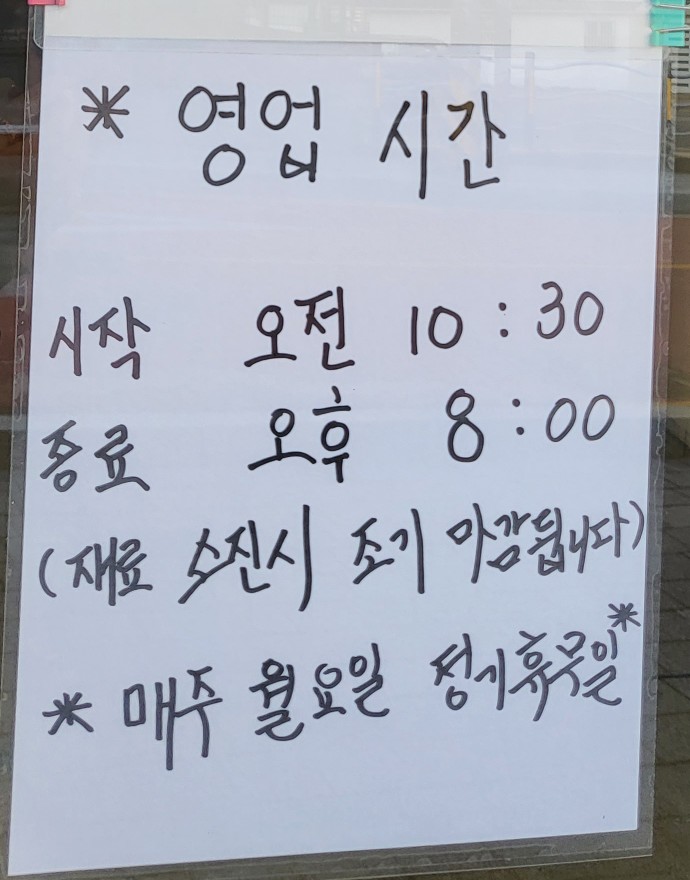 * 영업 시간
시작 오전 10:30
종료 오후 8:00
(재료 소진시 조기 마감됩니다)
* 매주 월요일 정기휴무일*